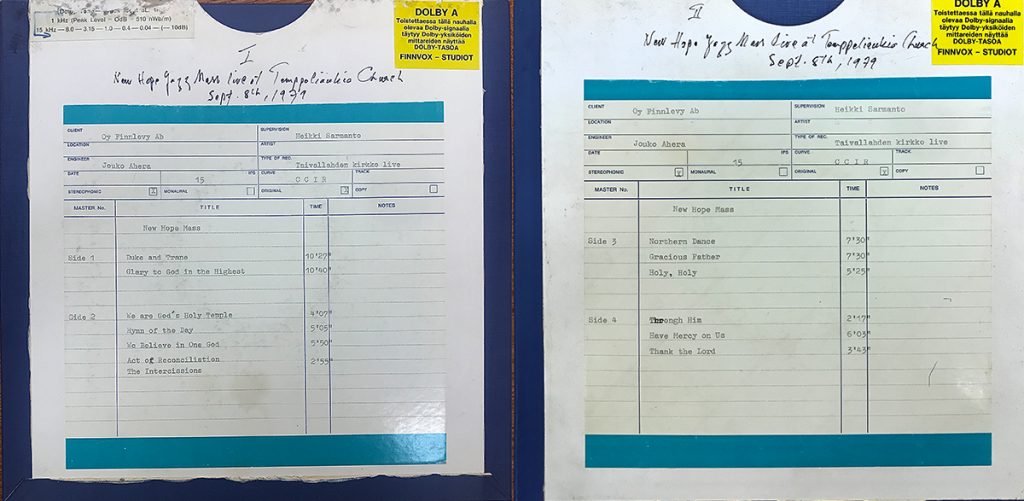 1 kHz (Peak Level – 0dB – 510 nWb/m)
15 kHz – 8.0 – 3.15 – 1.0 – 0.4 – 0.04 – (– 10dB)
DOLBY A
Toistettaessa tällä nauhalla
olevaa Dolby-signaalia
täytyy Dolby-yksiköiden
mittareiden näyttää
DOLBY-TASOA
FINNVOX – STUDIOT
I
New Hope Jazz Mass Live at Temppeliaukio Church
Sept. 8th, 1979
CLIENT Oy Finnlevy Ab SUPERVISION Heikki Sarmanto
LOCATION ARTIST
ENGINEER Jouko Ahera TYPE OF REC. Taivallahden kirkko live
DATE 15 IPS CURVE CCIR TRACK
STEREOPHONIC X MONAURAL ORIGINAL X COPY
MASTER No. TITLE TIME NOTES
New Hope Mass
Side 1 Duke and Trane 10'27"
Glary to God in the Highest 10'40"
Side 2 We are God's Holy Temple 4'07"
Hymn of the Day 5'05"
We Believe in One God 5'50"
Act of Reconciliation 2'55"
The Intercissions
DOLBY A
Toistettaessa tällä nauhalla
olevaa Dolby-signaalia
täytyy Dolby-yksiköiden
mittareiden näyttää
DOLBY-TASOA
FINNVOX – STUDIOT
II
New Hope Jazz Mass Live at Temppeliaukio Church
Sept. 8th, 1979
CLIENT Oy Finnlevy Ab SUPERVISION Heikki Sarmanto
LOCATION ARTIST
ENGINEER Jouko Ahera TYPE OF REC. Taivallahden kirkko live
DATE 15 IPS CURVE CCIR TRACK
STEREOPHONIC X MONAURAL ORIGINAL X COPY
MASTER No. TITLE TIME NOTES
New Hope Mass
Side 3 Northern Dance 7'30"
Gracious Father 7'30"
Holy, Holy 5'25"
Side 4 Through Him 2'17"
Have Mercy on Us 6'03"
Thank the Lord 3'43"